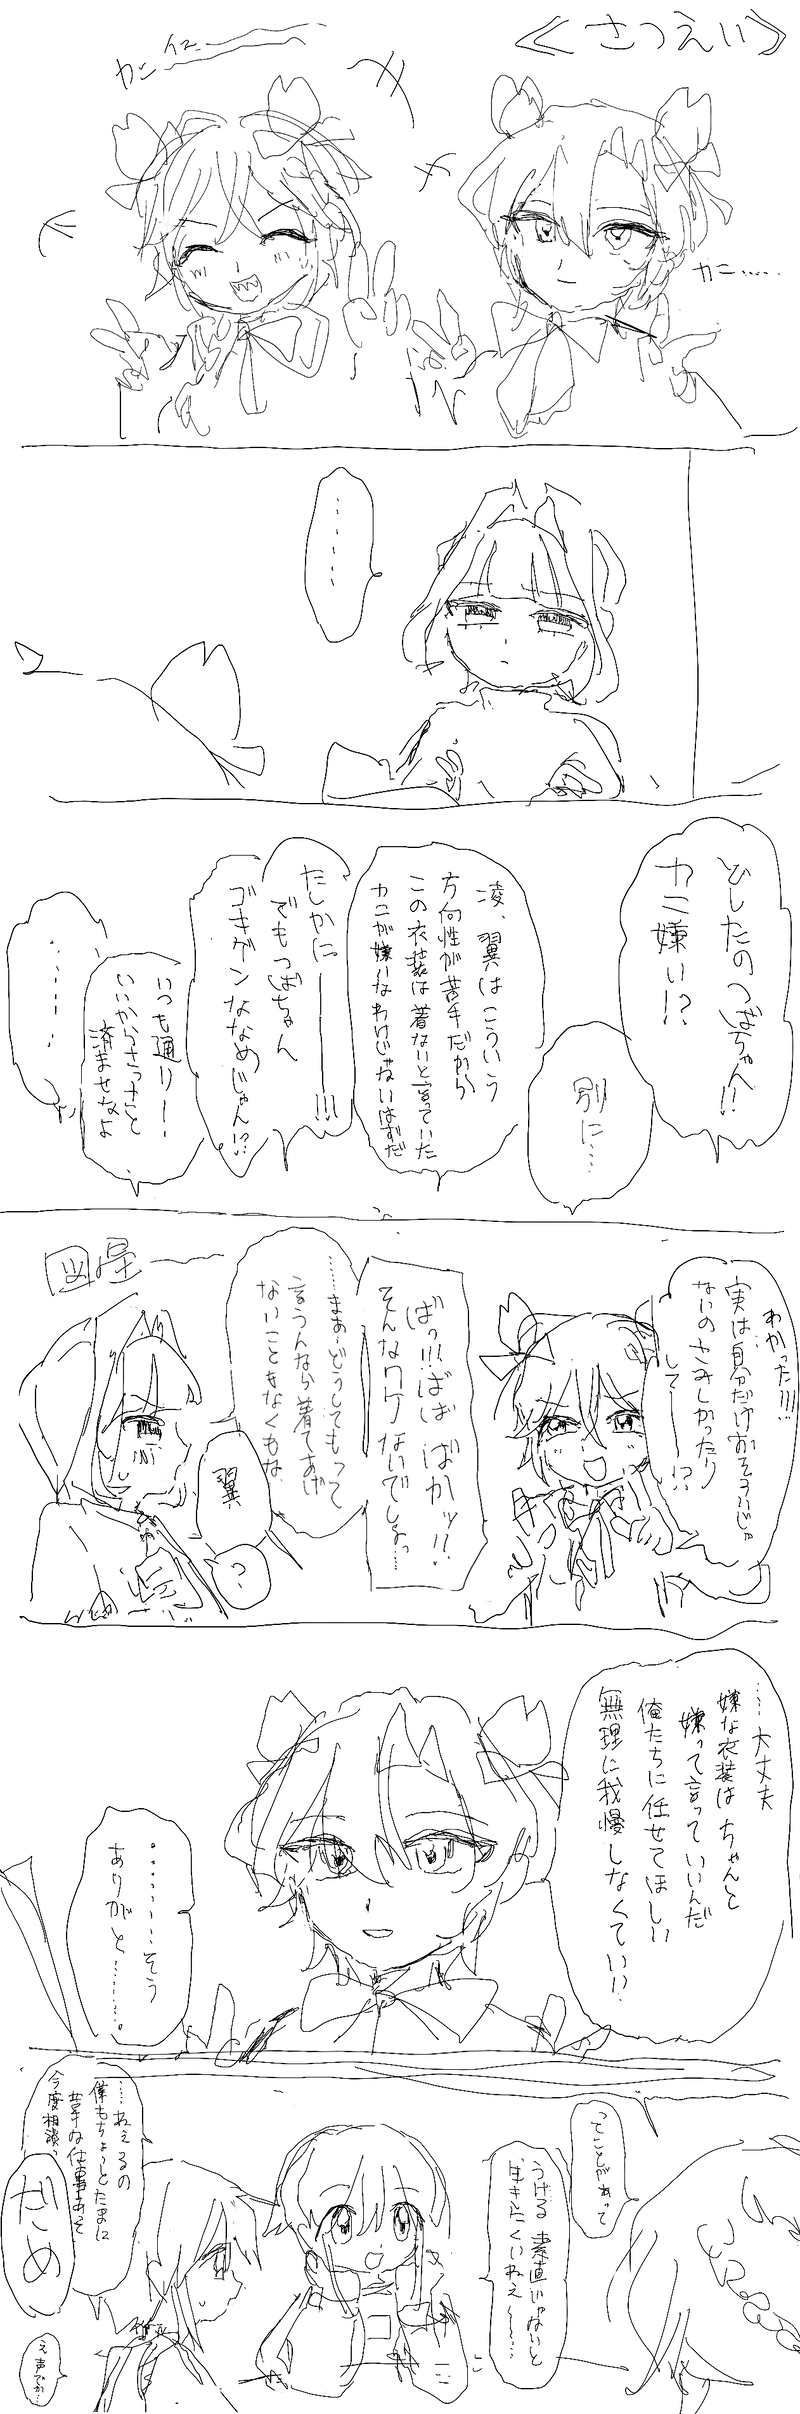 ≪さつえい≫
カニイエ
カニ……
……
どしたのつばちゃん!!
カニ嫌い!?
別に…
凌、翼はこういう
方向性が苦手だから
この衣装は着ないと言っていた
カニが嫌いなわけじゃないはずだ
たしかに──!!!
でもつばちゃん
ゴキゲンななめじゃん!?
いつも通り──
いいからさっさと
済ませなよ
……
わかった!!!!
実は自分だけおそろいじゃ
ないのさみしかったり
して──!?
ばっ!!!ばばばかッ!!
そんなワケないでしょっ…
……まぁ…どうしてもって
言うんなら着てあげ
ないこともなくもな
図星──
翼
?
……大丈夫
嫌な衣装はちゃんと
嫌って言っていいんだ
俺たちに任せてほしい
無理に我慢しなくていい
…………そう
ありがと………
ってことがあって
うける 素直じゃないと
生きにくいねえ〜……
……ねえるの
僕もちょっとたまに
苦手な仕事あって
今度相談っ
だめ
え声でか…